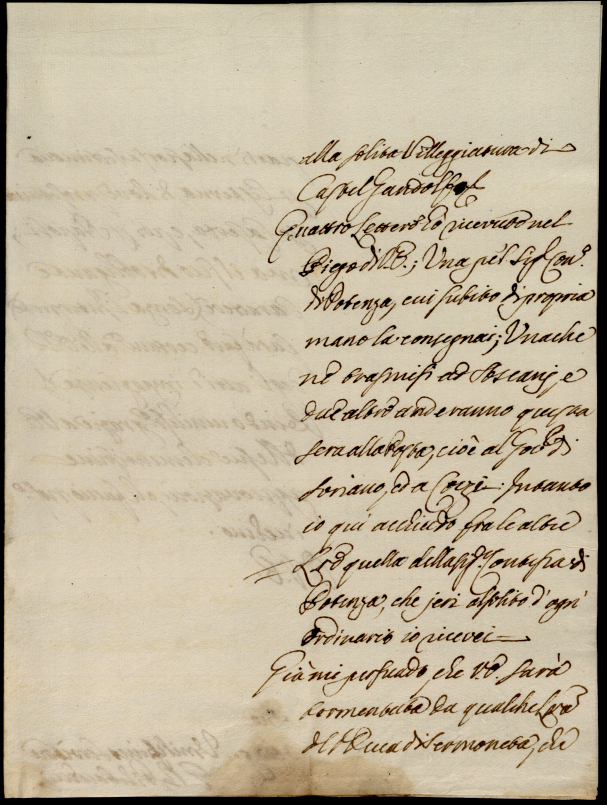 alla solita Villeggiatura di
Castel Gandolfo
Quattro Lettere hò ricevuto nel
Piego di V.E.; Una pel Sigr. Con.e
di Potenza, cui subito di propria
mano la consegnai; Una che
ne trasmisi ad Toscani, e
due altre anderanno questa
sera alla Posta, cioè al Gov.e di
Soriano, ed a Corzi: Intanto
io qui acchiudo fra le altre
Lre quella della Sig.ra Contessa di
Potenza, che jeri al solito d'ogni
ordinario io ricevei
Già mi persuado, che V.E. sarà
tormentata da qualche Lra
del Duca di Sermoneta, che